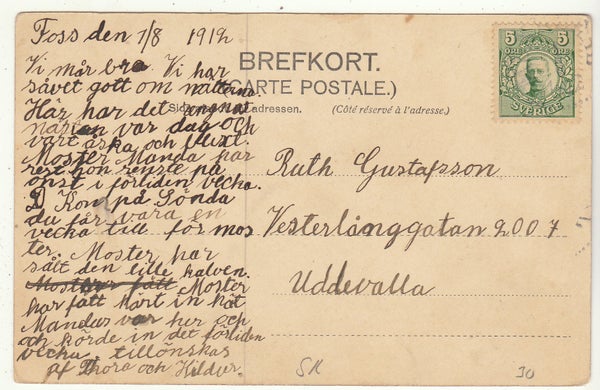 Foss den 1/8 1912
Vi mår bra Vi har
såvet gott om nätterna.
Här har det
nästan var dag och
vart åska och blixt.
Moster Manda har
rest hon renste på
onst i förliden vecka.
på Sönda
du får vara en
vecka till för mos
ter. Moster har
sålt den lille kalven.
Moster
har fått Mårt in kat
Mandas var her och
och körde in det förliden
vecka. tillönskas
af Thora och Hildur.
BREFKORT.
(CARTE POSTALE.)
adressen. (Côté réservé à l'adresse.)
5 5
ÖRE ÖRE
SVERIGE
Ruth Gustafsson
Vesterlånggatan 2007
Uddevalla
SK
30